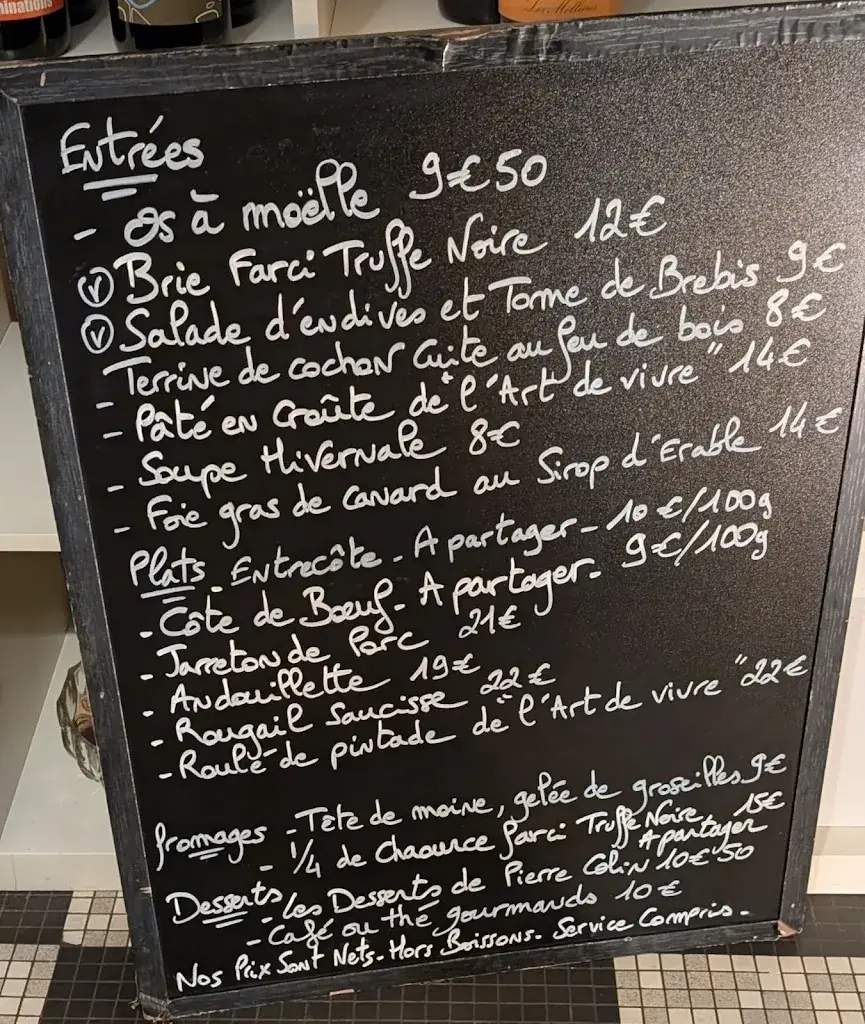 minations
Les Mollins
Entrées
- Os à moëlle 9€50
Ⓥ Brie Farci Truffe Noire 12€
Ⓥ Salade d'endives et Tome de Brebis 9€
- Terrine de cochon Cuite au feu de bois 8€
- Pâté en Croûte de "l'Art de vivre" 14€
- Soupe Hivernale 8€
- Foie gras de canard au Sirop d'Erable 14€
Plats - Entrecôte - A partager - 10€/100g
- Côte de Bœuf - A partager - 9€/100g
- Jarreton de Porc 21€
- Andouillette 19€
- Rougail Saucisse 22€
- Roulé de pintade de "l'Art de vivre" 22€
fromages - Tête de moine, gelée de groseilles 9€
- 1/4 de Chaource farci Truffe Noire 15€
A partager
Desserts - Les Desserts de Pierre Colin 10€50
- Café ou thé gourmands 10€
Nos Prix Sont Nets - Hors Boissons - Service Compris -